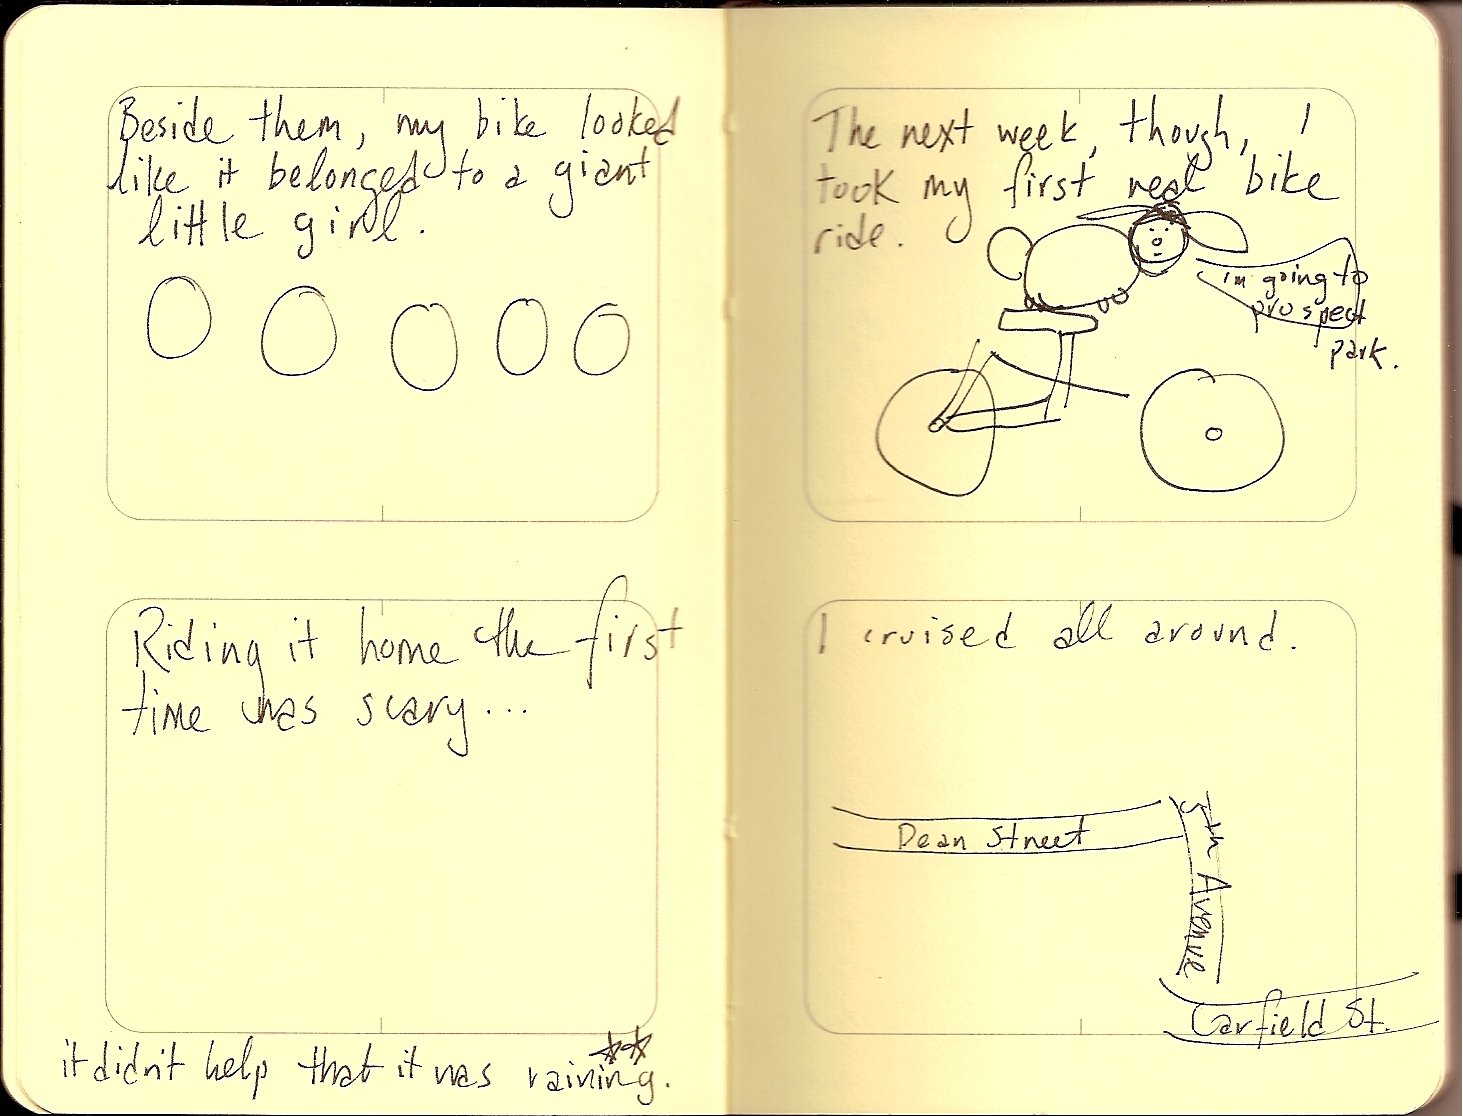 Beside them, my bike looked
like it belonged to a giant
little girl.
Riding it home the first
time was scary...
it didn't help that it was raining.**
The next week, though, I
took my first real bike
ride.
im going to
prospect
park.
I cruised all around.
Dean Street
5th Avenue
Garfield St.